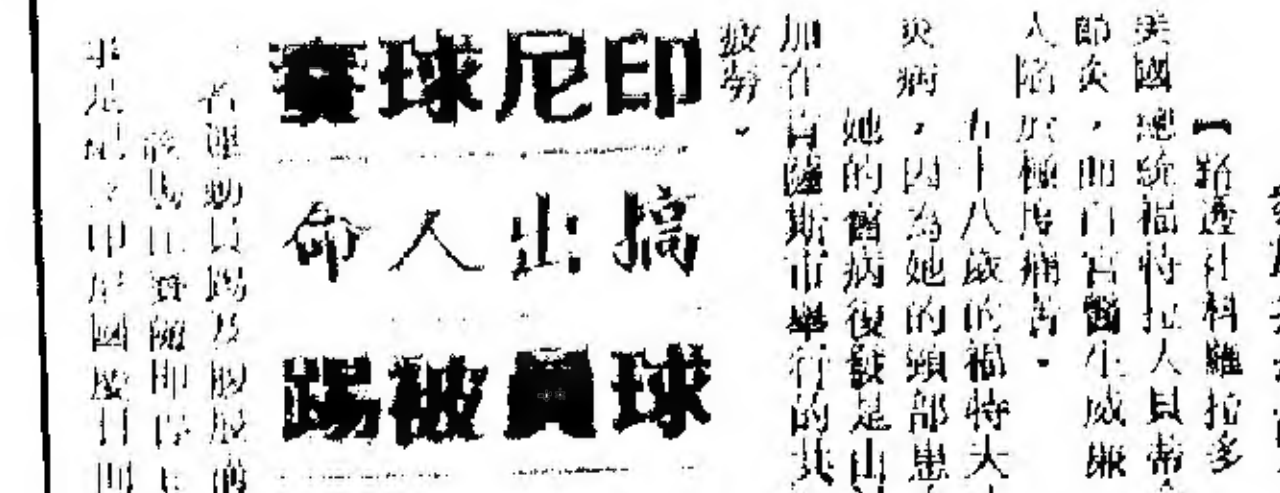 【路透社科羅拉多
美國總統福特夫人貝蒂
節炎，而白宮醫生威廉
人陷於極度痛苦。
五十八歲的福特夫
炎病，因為她的頸部患
她的舊病復發是由
加在肯薩斯市舉行的共
疲勞。
印尼球賽
搞出人命
球員被踢
者運動員踢及腹
印尼國慶日